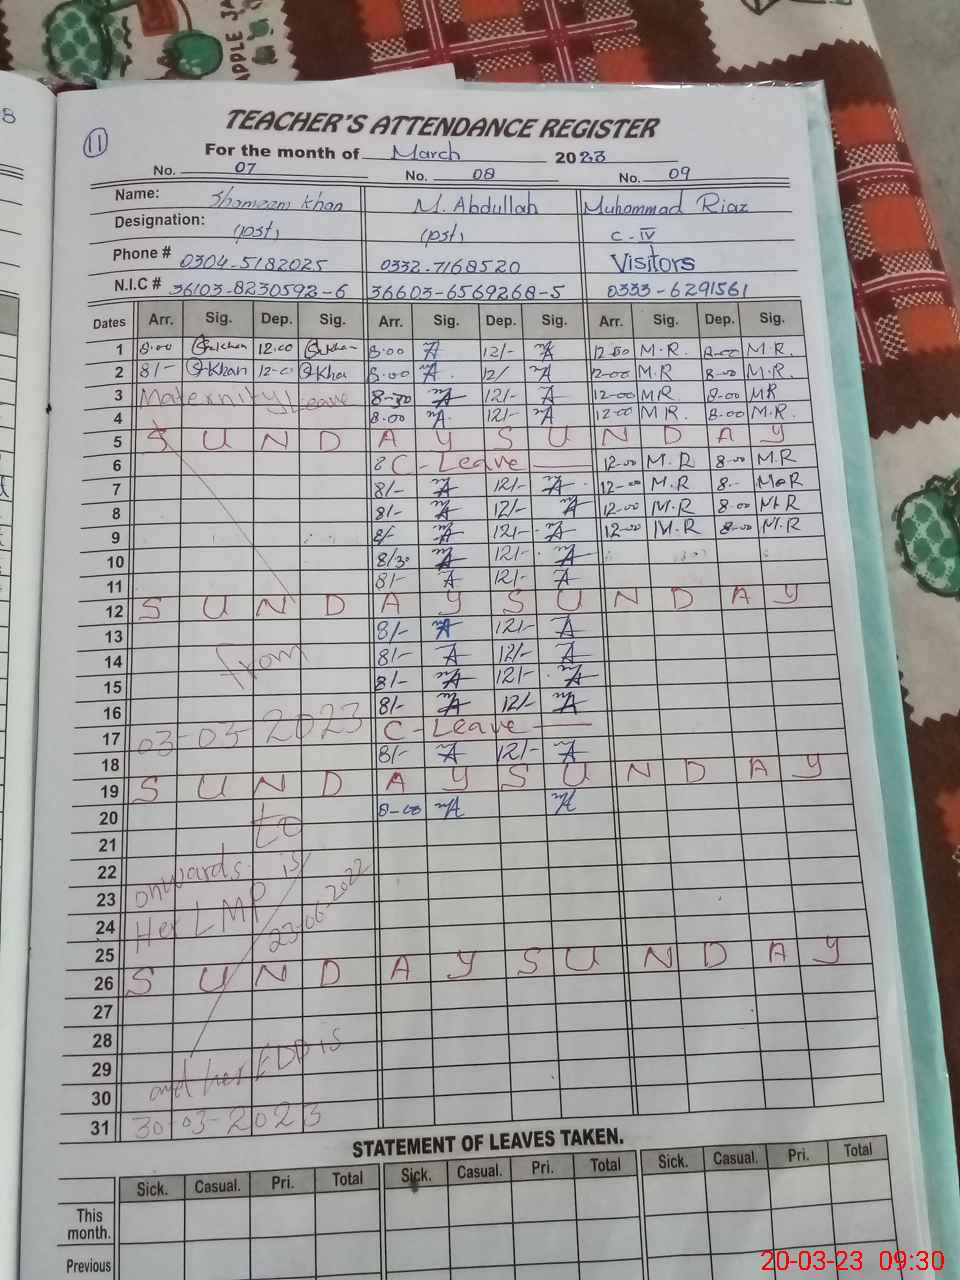 8
APPLE JA
11
TEACHER'S ATTENDANCE REGISTER
For the month of March 2023
No. 07 No. 08 No. 09
Name: Shameem Khan M. Abdullah Muhammad Riaz
Designation: (PST) (PST) C-IV
Phone # 0304-5182025 0332-7168520 Visitors
N.I.C # 36103-8230592-6 36603-6569268-5 0333-6291561
Dates Arr. Sig. Dep. Sig. Arr. Sig. Dep. Sig. Arr. Sig. Dep. Sig.
1 8:00 12:00 8:00 12/- 12:00 M.R. 8:00 M.R.
2 8/- Khan 12:00 Kha 8:00 12/ 12:00 M.R 8:00 M.R.
3 Maternity Leave 8:00 12/- 12:00 MR 8:00 MR
4 8:00 12/- 12:00 MR. 8:00 M.R.
5 S U N D A Y S U N D A Y
6 C-Leave 12:00 M.R 8:00 M.R
7 8/- 12/- 12:00 M.R 8:- M.R
8 8/- 12/- 12:00 M.R 8:00 M.R
9 8/- 12/- 12:00 M.R 8:00 M.R
10 8/30 12/-
11 8/- 12/-
12 S U N D A Y S U N D A Y
13 8/- 12/-
14 from 8/- 12/-
15 8/- 12/-
16 8/- 12/-
17 03-03-2023 C-Leave
18 8/- 12/-
19 S U N D A Y S U N D A Y
20 to 8-00
21
22 onwards.
23 Her LMP is
24 23-06-2022
25
26 S U N D A Y S U N D A Y
27
28
29 and her EDD is
30
31 30-03-2023
STATEMENT OF LEAVES TAKEN.
Sick. Casual. Pri. Total Sick. Casual. Pri. Total Sick. Casual. Pri. Total
This month.
Previous
20-03-23 09:30